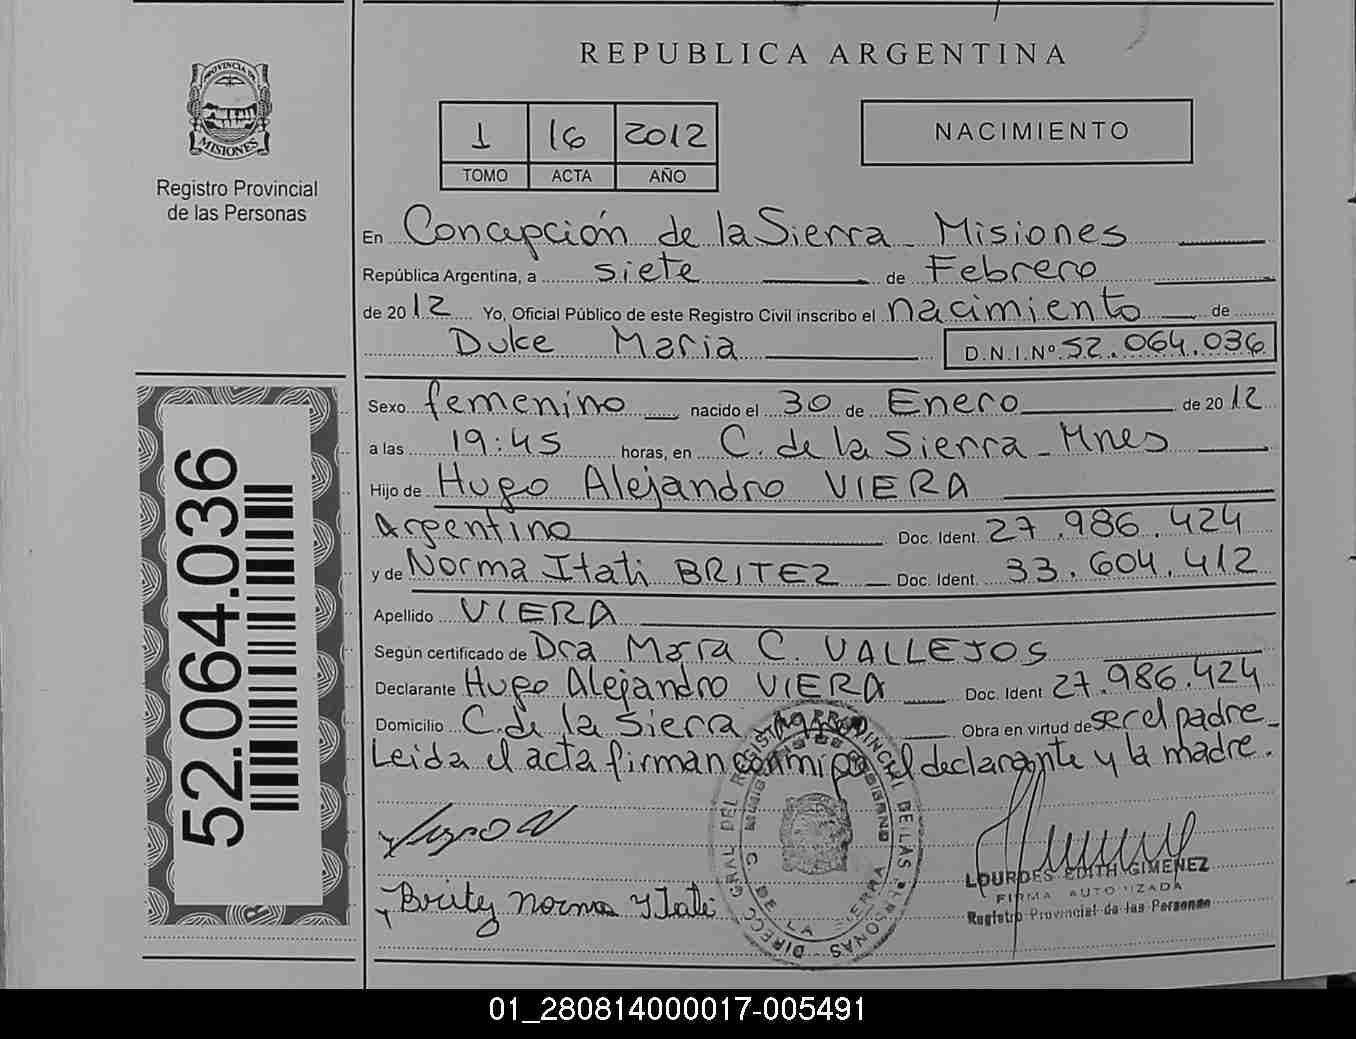 PROVINCIA DE
MISIONES
Registro Provincial
de las Personas
REPUBLICA ARGENTINA
1 16 2012
TOMO ACTA AÑO
NACIMIENTO
En Concepción de la Sierra - Misiones
República Argentina, a siete de Febrero
de 2012 Yo, Oficial Público de este Registro Civil inscribo el nacimiento de
Duke Maria D.N.I.Nº 52.064.036
Sexo femenino nacido el 30 de Enero de 2012
a las 19:45 horas, en C. de la Sierra - Mnes
Hijo de Hugo Alejandro VIERA
Argentino Doc. Ident. 27.986.424
y de Norma Itati BRITEZ Doc. Ident. 33.604.412
Apellido VIERA
Según certificado de Dra Maria C. VALLEJOS
Declarante Hugo Alejandro VIERA Doc. Ident 27.986.424
Domicilio C. de la Sierra Obra en virtud de ser el padre -
Leida el acta firman conmigo el declarante y la madre.
Britez Norma Itati
LOURDES EDITH GIMENEZ
FIRMA AUTORIZADA
Registro Provincial de las Personas
DIRECC. GRAL DEL REGISTRO PROVINCIAL DE LAS PERSONAS
C DE LA SIERRA
52.064.036
01_280814000017-005491